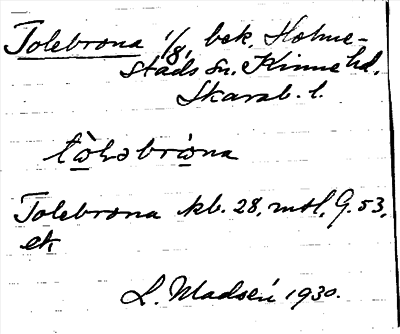 Tolebrona 1/8, bek. Holme-
stads sn. Kinne hd.
Skarab. l.
tὼləbrὼna
Tolebrona kb. 28, mtl, G. 53,
ek
L. Madsén 1930.